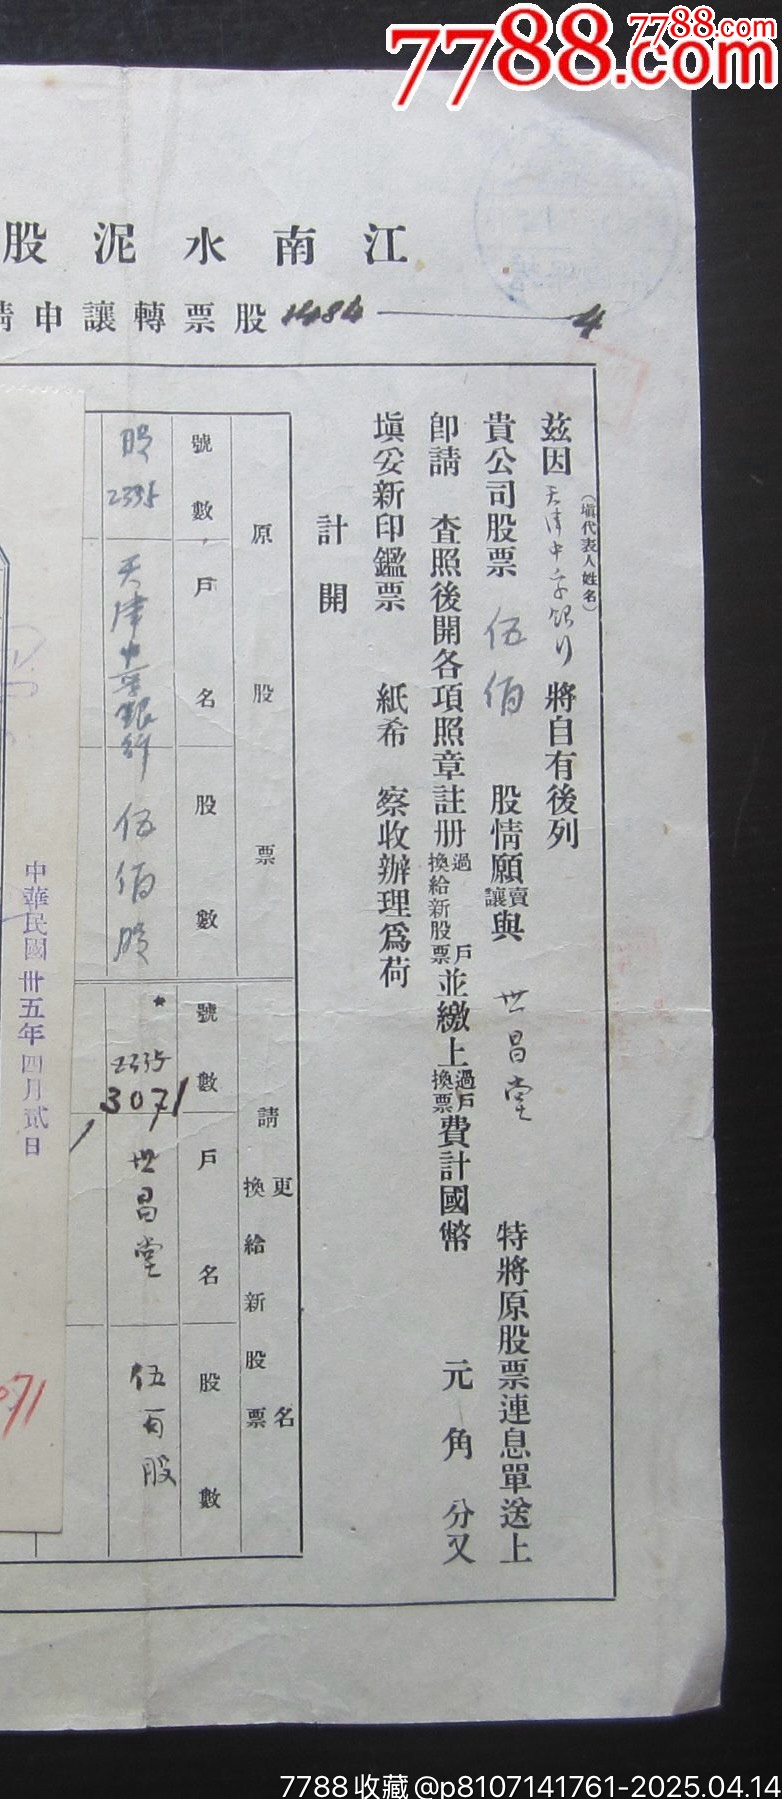 7788.com
7788.com
江南水泥股
股票轉讓申請
4
茲因天津中孚銀行(塡代表人姓名)將自有後列
貴公司股票伍佰股情願賣讓與世昌堂特將原股票連息單送上
卽請查照後開各項照章註册過戶換給新股票並繳上過戶換票費計國幣元角分又
塡妥新印鑑票紙希察收辦理爲荷
計開
原股票
請更名換給新股票
號數
戶名
股數
號數
戶名
股數
股
2335
天津中孚銀行
伍佰股
2335
3071
世昌堂
伍百股
中華民國卅五年四月貳日
071
7788收藏@p8107141761-2025.04.14